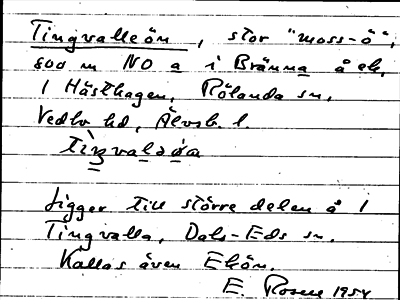 Tingvalleön, stor "moss-ö",
800 m NO a i Bränna å ek.
1 Hästhagen, Rölanda sn,
Vedbo hd, Älvsb. l.
tiŋvaləda
Ligger till större delen å 1
Tingvalla, Dals-Eds sn.
Kallas även Ekön.
E. Rosell 1954